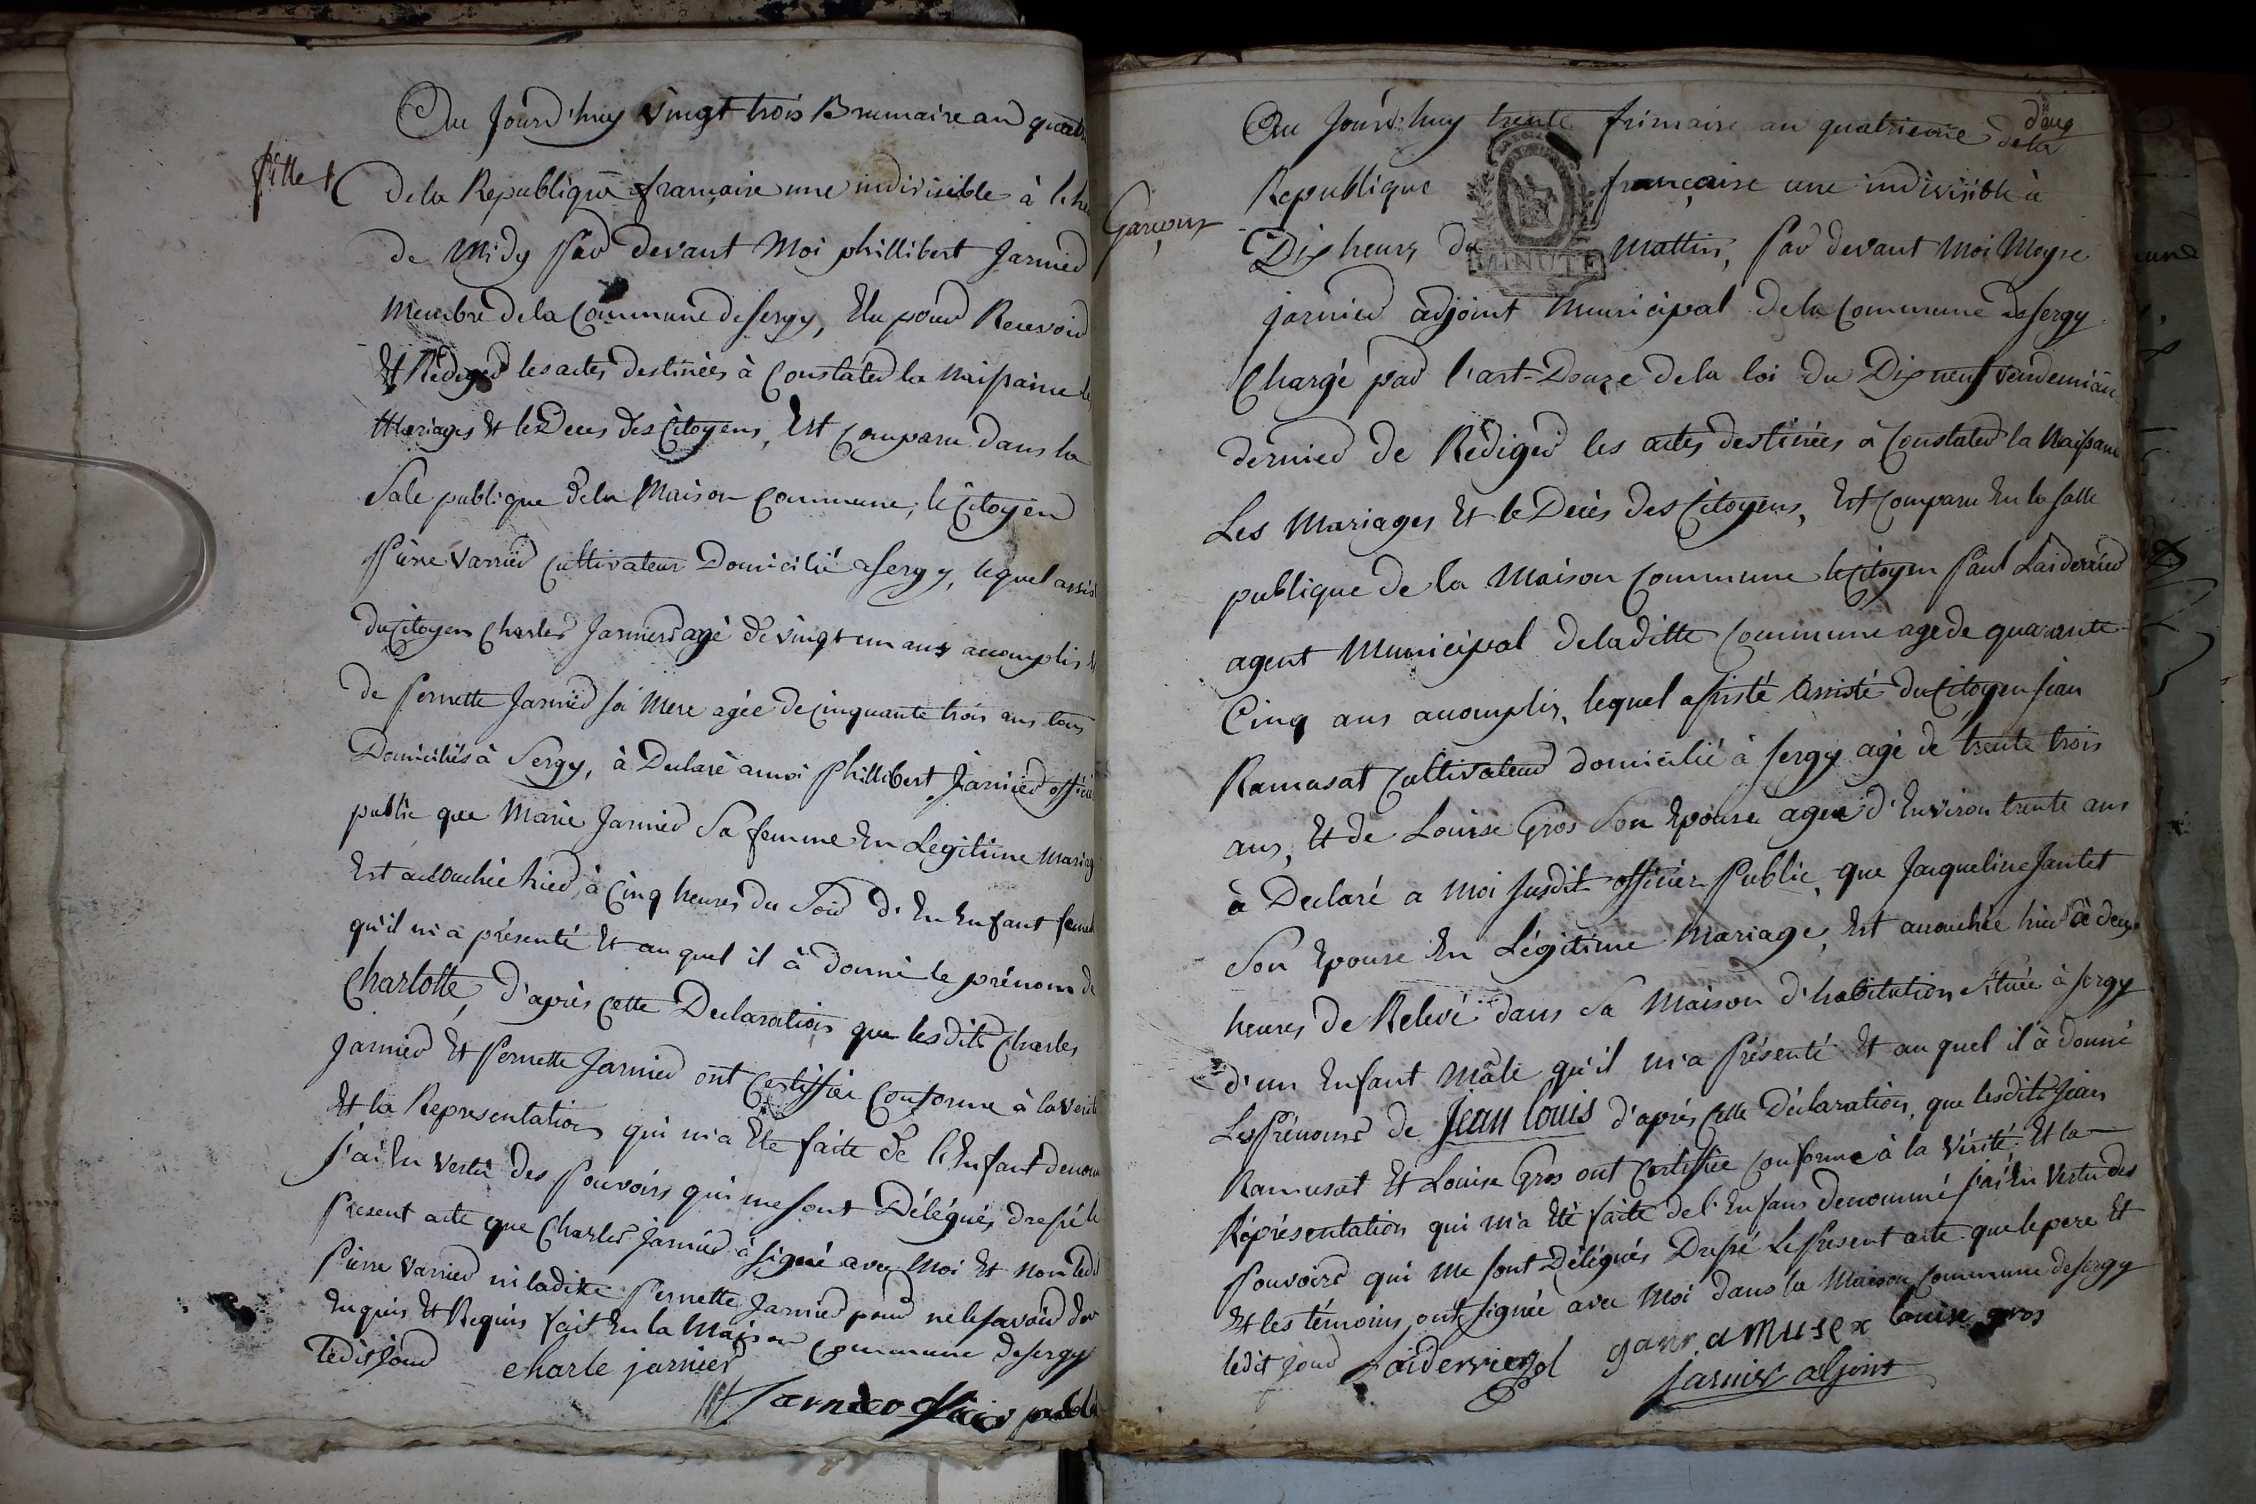 Au Jourd'huy vingt trois Brumaire an quat
fille
de la Republique française une indivisible à l'he
de Midy Par devant Moi phillibert Jarnier
Membre de la Commune de Sergy, Elu pour Recevoir
Et Rédiger les actes destinées à Constater la Naissance le
Mariages Et les Deces des Citoyens, Est Comparu dans la
Sale publique de la Maison Commune, le Citoyen
Pierre Varrier Cultivateur Domicilié a Sergy, lequel assis
du Citoyen Charles Jarnier agé de vingt un ans accomplis Et
de Pernette Jarnier sa Mere agée de Cinquante trois ans tous
Domiciliés à Sergy, à Declaré a moi Phillibert Jarnier offici
public que Marie Jarnier Sa femme En Legitime Mariag
Est accouchée hier, à Cinq heures du Soir d'En Enfant femel
qu'il m'a présenté Et auquel il à donné le prénom de
Charlotte, d'après Cette Declaration que lesdits Charles
Jarnier Et Pernette Jarnier ont Certiffiée Conforme à la verité
Et la Representation qui m'a Eté faite de l'Enfant denom
J'ai En vertu des Pouvoirs qui me sont Délégués dressé le
Present acte que Charles Jarnier à signé avec Moi Et non ledi
Pierre Varrier ni ladite Pernette Jarnier pour ne le savoir de
Enquis Et Requis fait En la Maison Commune de Sergy
ledit Jour charle jarnier
Jarnier officier public
Au Jourd'huy trente frimaire an quatrieme de la
Garçon
Republique française une indivisible à
Dix heures du Mattin, Par devant Moi Moyse
MINUTE
jarnier adjoint Municipal de la Commune de Sergy
Chargé par l'art-Douze de la loi du Dix neuf vendemiaire
dernier de Rédiger les actes destinées à Constater la Naissance
Les Mariages Et le Décès des Citoyens, Est Comparu En la Salle
publique de la Maison Commune le Citoyen Paul Laiderrier
agent Municipal de laditte Commune age de quarante
Cinq ans accomplis, lequel assisté assisté du Citoyen Jean
Ramusat Cultivateur domicilié à Sergy agé de trente trois
ans, Et de Louise Gros Son Epouse agée d'Environ trente ans
à Declaré a Moi Susdit officier Public, que Jacqueline Jantet
Son Epouse En Légitime Mariage, Est accouchée hier à deux
heures de Relevé dans Sa Maison d'habitation Située à Sergy
d'un Enfant Mâle qu'il m'a Présenté Et auquel il à donné
Les Prénoms de Jean Louis d'après Cette Déclaration, que lesdits Jean
Ramusat Et Louise Gros ont Certiffiée Conforme à la Vérité, Et la
Réprésentation qui m'a Eté faite de l'Enfans denommé j'ai En Vertu des
Pouvoirs qui Me sont Délégués Dressé Le Present acte que le pere Et
Et les témoins ont signée avec Moi dans la Maison Commune de Sergy
ledit Jour Laiderrier louise gros
jarnier adjoint